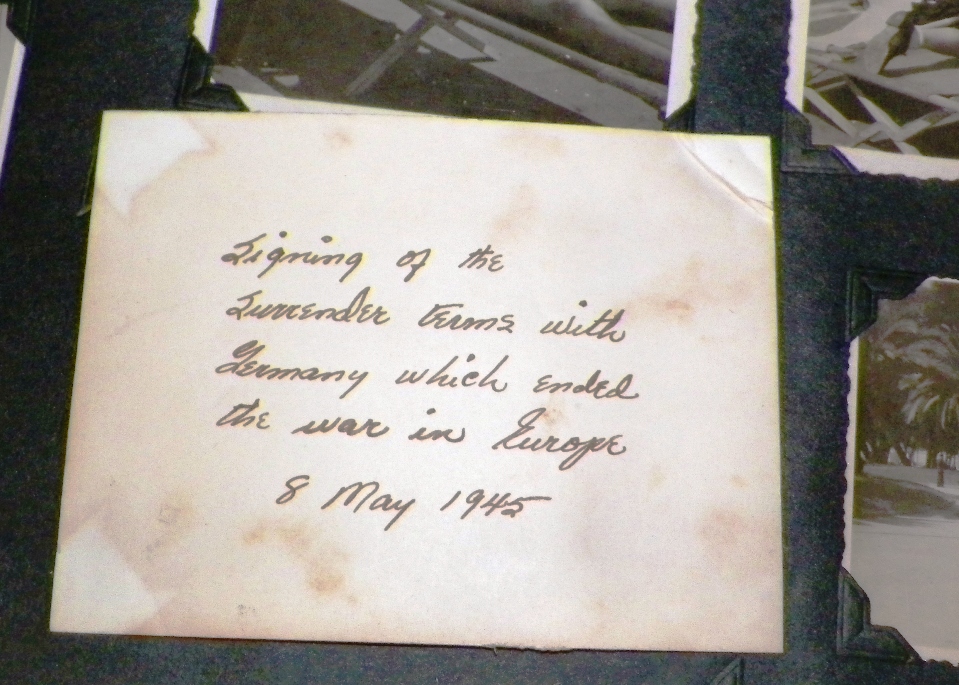 Signing of the
Surrender terms with
Germany which ended
the war in Europe
8 May 1945